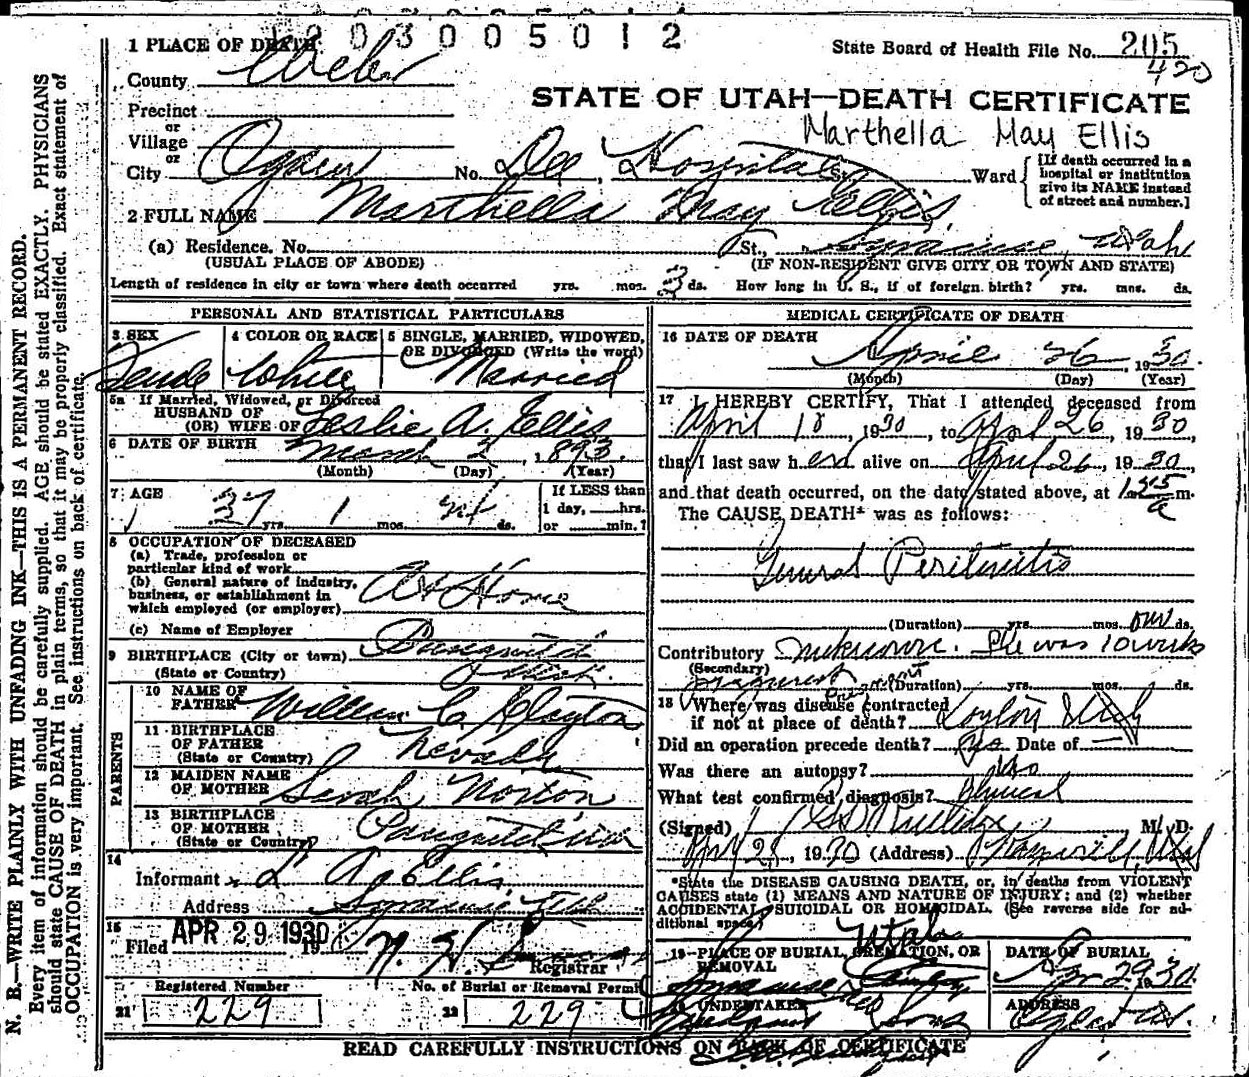 2 0 3 0 0 5 0 1 2
State Board of Health File No. 205
420
1 PLACE OF DEATH
County Weber
STATE OF UTAH—DEATH CERTIFICATE
Precinct
or
Village
Marthella May Ellis
or
City Ogden No. Dee Hospital St. Ward
[If death occurred in a hospital or institution give its NAME instead of street and number.]
2 FULL NAME Marthella May Ellis
(a) Residence. No. St., Syracuse, Utah
(USUAL PLACE OF ABODE) (IF NON-RESIDENT GIVE CITY OR TOWN AND STATE)
Length of residence in city or town where death occurred yrs. mos. 3 ds. How long in U. S., if of foreign birth? yrs. mos. ds.
PERSONAL AND STATISTICAL PARTICULARS
3 SEX 4 COLOR OR RACE 5 SINGLE, MARRIED, WIDOWED,
OR DIVORCED (Write the word)
Female White Married
5a If Married, Widowed, or Divorced
HUSBAND OF
(OR) WIFE OF Leslie A. Ellis
6 DATE OF BIRTH March 2, 1893
(Month) (Day) (Year)
7 AGE 37 yrs. 1 mos. 24 ds.
If LESS than
1 day, hrs.
or min.?
8 OCCUPATION OF DECEASED
(a) Trade, profession or
particular kind of work
(b) General nature of industry,
business, or establishment in
which employed (or employer) At Home
(c) Name of Employer
9 BIRTHPLACE (City or town) Panguitch
(State or Country) Utah
PARENTS
10 NAME OF
FATHER William C. Clayton
11 BIRTHPLACE
OF FATHER Nevada
(State or Country)
12 MAIDEN NAME
OF MOTHER Sarah Norton
13 BIRTHPLACE
OF MOTHER Panguitch Utah
(State or Country)
14
Informant L A Ellis
Address Syracuse Utah
15
Filed APR 29 1930 19
Registrar
Registered Number No. of Burial or Removal Permit
21 229 22 229
MEDICAL CERTIFICATE OF DEATH
16 DATE OF DEATH April 26, 1930
(Month) (Day) (Year)
17 I HEREBY CERTIFY, That I attended deceased from
April 18, 1930, to April 26, 1930,
that I last saw her alive on April 26, 1930,
and that death occurred, on the date stated above, at 1:25 a m.
The CAUSE DEATH* was as follows:
General Peritonitis
(Duration) yrs. mos. ds.
Contributory unknown. She was 10 weeks
(Secondary) pregnant
pregnant (Duration) yrs. mos. ds.
18 Where was disease contracted
if not at place of death? Layton Utah
Did an operation precede death? yes Date of —
Was there an autopsy? no
What test confirmed diagnosis? Clinical
(Signed) M. D.
April 28, 1930 (Address) Kaysville, Utah
*State the DISEASE CAUSING DEATH, or, in deaths from VIOLENT
CAUSES state (1) MEANS AND NATURE OF INJURY; and (2) whether
ACCIDENTAL, SUICIDAL OR HOMICIDAL. (See reverse side for ad-
ditional space.)
Utah
19—PLACE OF BURIAL, CREMATION, OR
REMOVAL
Syracuse
DATE OF BURIAL
Apr 29 1930
UNDERTAKER
ADDRESS
READ CAREFULLY INSTRUCTIONS ON BACK OF CERTIFICATE
N. B.—WRITE PLAINLY WITH UNFADING INK—THIS IS A PERMANENT RECORD.
Every item of information should be carefully supplied. AGE should be stated EXACTLY. PHYSICIANS
should state CAUSE OF DEATH in plain terms, so that it may be properly classified. Exact statement of
OCCUPATION is very important. See instructions on back of certificate.